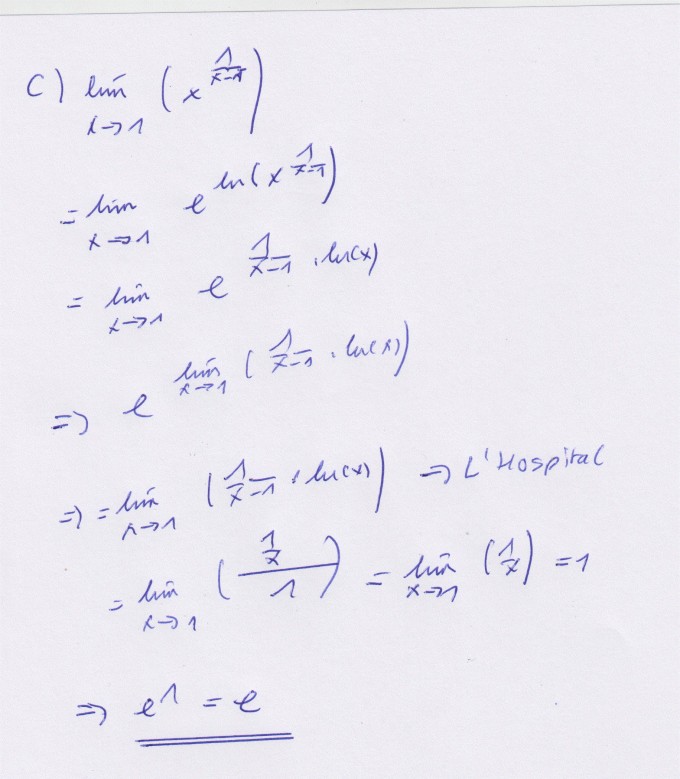 c) lim_{x→1} (x^{1/(x-1)})
= lim_{x→1} e^{ln(x^{1/(x-1)})}
= lim_{x→1} e^{1/(x-1) · ln(x)}
⇒ e^{lim_{x→1} (1/(x-1) · ln(x))}
⇒ = lim_{x→1} (1/(x-1) · ln(x)) ⇒ L'Hospital
= lim_{x→1} ((1/x)/1) = lim_{x→1} (1/x) = 1
⇒ e^1 = e